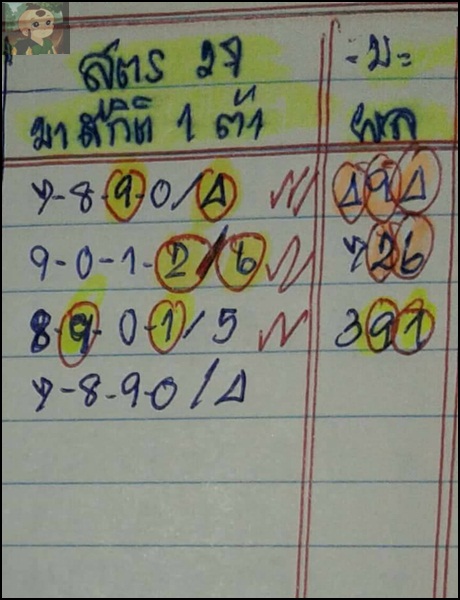 สูตร 27 -บ-
มาสถิติ 1 ตัว ผล
7-8-9-0/4 494
9-0-1-2/6 726
8-9-0-1/5 391
7-8-9-0/4